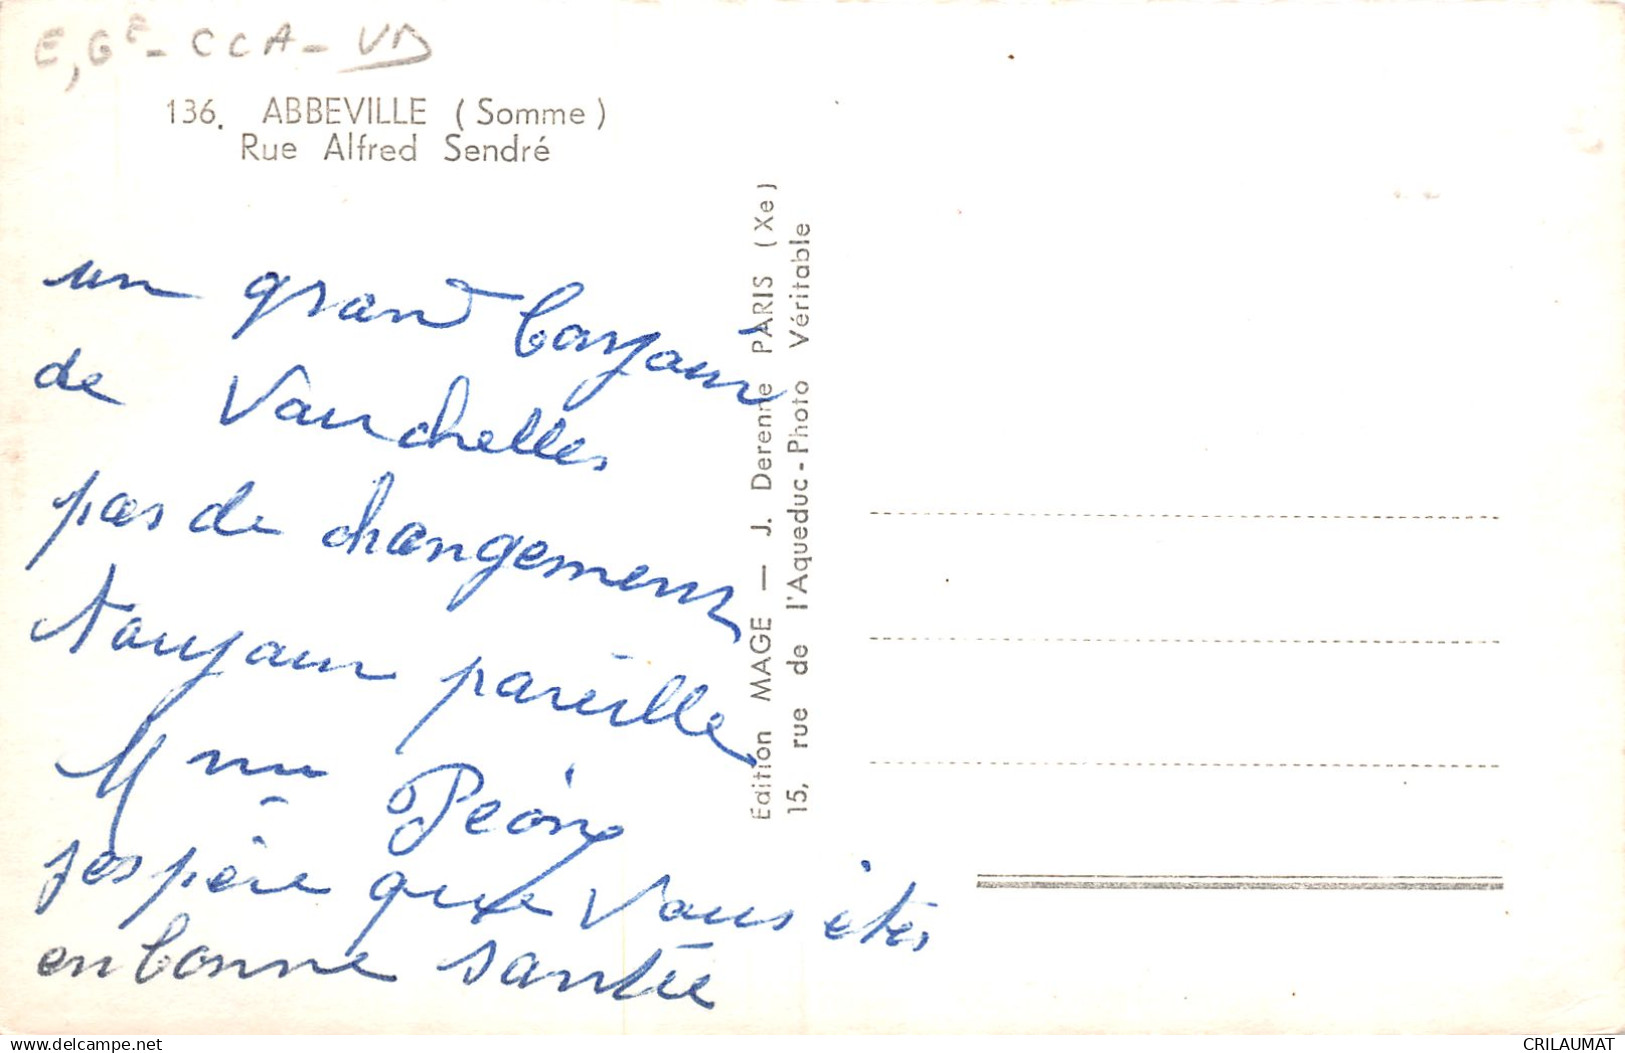 E, GF - CCA - VD
136. ABBEVILLE (Somme)
Rue Alfred Sendré
un grand bonjour
de Vauchelles
pas de changement
toujour pareille
Mme
j'espère que vous êtes
en bonne santée
Edition MAGE — J. Derenne PARIS (Xe)
15, rue de l'Aqueduc - Photo Véritable
www.delcampe.net
CRILAUMAT